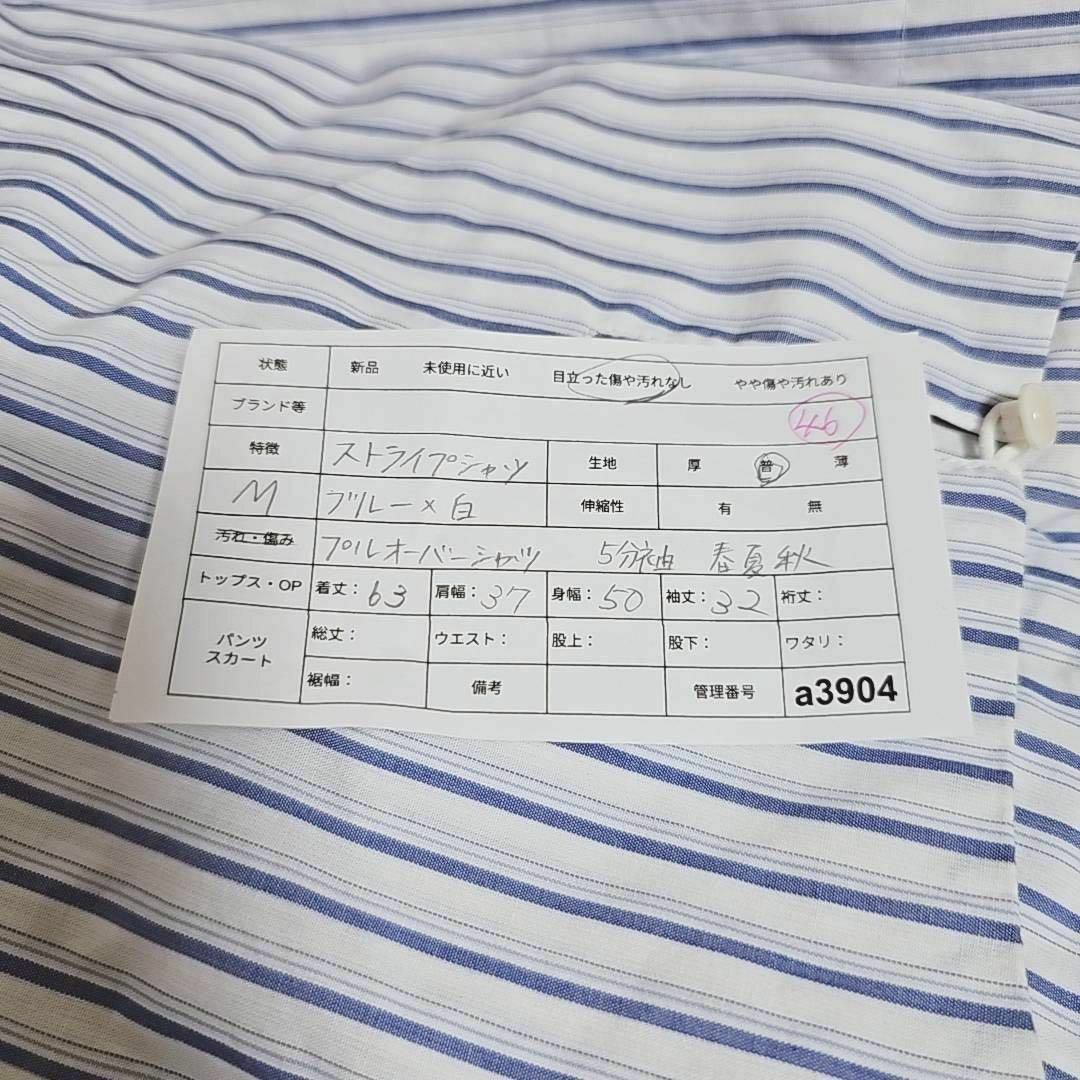 状態 新品 未使用に近い 目立った傷や汚れなし やや傷や汚れあり
ブランド等 46
特徴 ストライプシャツ 生地 厚 普 薄
M ブルー×白 伸縮性 有 無
汚れ・傷み プルオーバーシャツ 5分袖 春夏秋
トップス・OP 着丈：63 肩幅：37 身幅：50 袖丈：32 裄丈：
パンツ スカート 総丈： ウエスト： 股上： 股下： ワタリ：
裾幅： 備考 管理番号 a3904